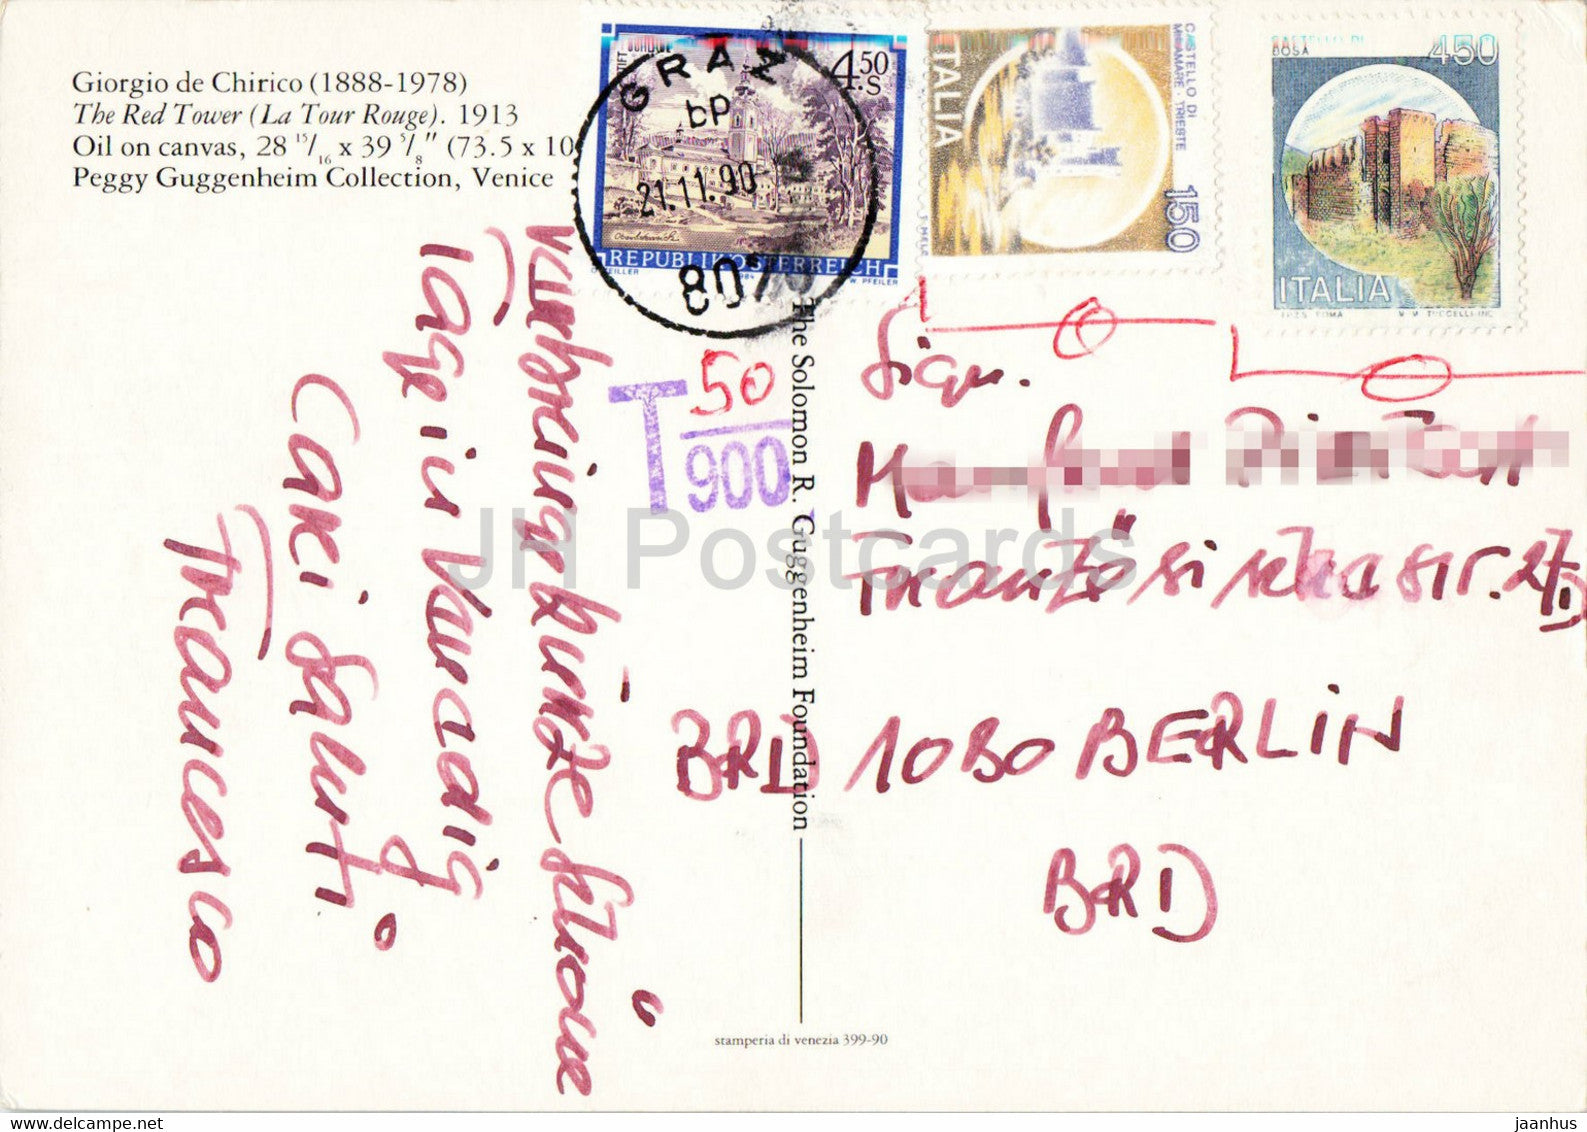 Giorgio de Chirico (1888-1978)
The Red Tower (La Tour Rouge). 1913
Oil on canvas, 28 15/16 x 39 5/8" (73.5 x 10
Peggy Guggenheim Collection, Venice
GRAZ
bp
21.11.90
807
4.50 S
REPUBLIK ÖSTERREICH
W. PFEILER
ITALIA
CASTELLO DI
MIRAMARE - TRIESTE
150
CASTELLO DI
BOSA
450
ITALIA
I.P.Z.S. ROMA
T 50
900
The Solomon R. Guggenheim Foundation
verbringt kurze schöne
Tage in Venedig
Cari saluti
Francesco
Sign.
Französische Str.
BRD 1080 BERLIN
BRD
stamperia di venezia 399-90
JH Postcards
jaanhus
www.delcampe.net